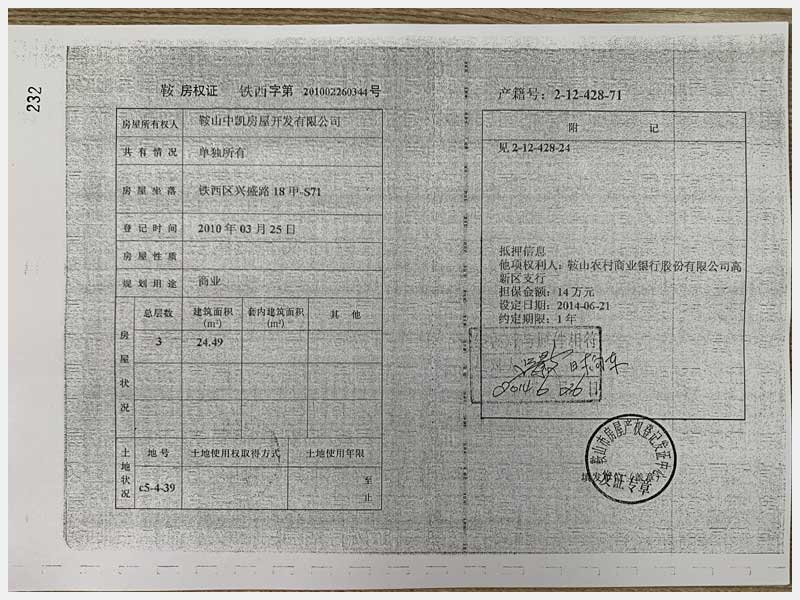 232
鞍 房权证 铁西字第 201002260344号
房屋所有权人 鞍山中凯房屋开发有限公司
共有情况 单独所有
房屋坐落 铁西区兴盛路18甲-S71
登记时间 2010年03月25日
房屋性质
规划用途 商业
房屋状况
总层数 建筑面积(m²) 套内建筑面积(m²) 其他
3 24.49
土地状况
地号 土地使用权取得方式 土地使用年限
c5-4-39 至
止
产籍号：2-12-428-71
附记
见2-12-428-24
抵押信息
他项权利人：鞍山农村商业银行股份有限公司高
新区支行
担保金额：14万元
设定日期：2014-06-21
约定期限：1年
与原件相符
鞍山市房屋产权登记发证中心
发证专章
填发单位（盖章）